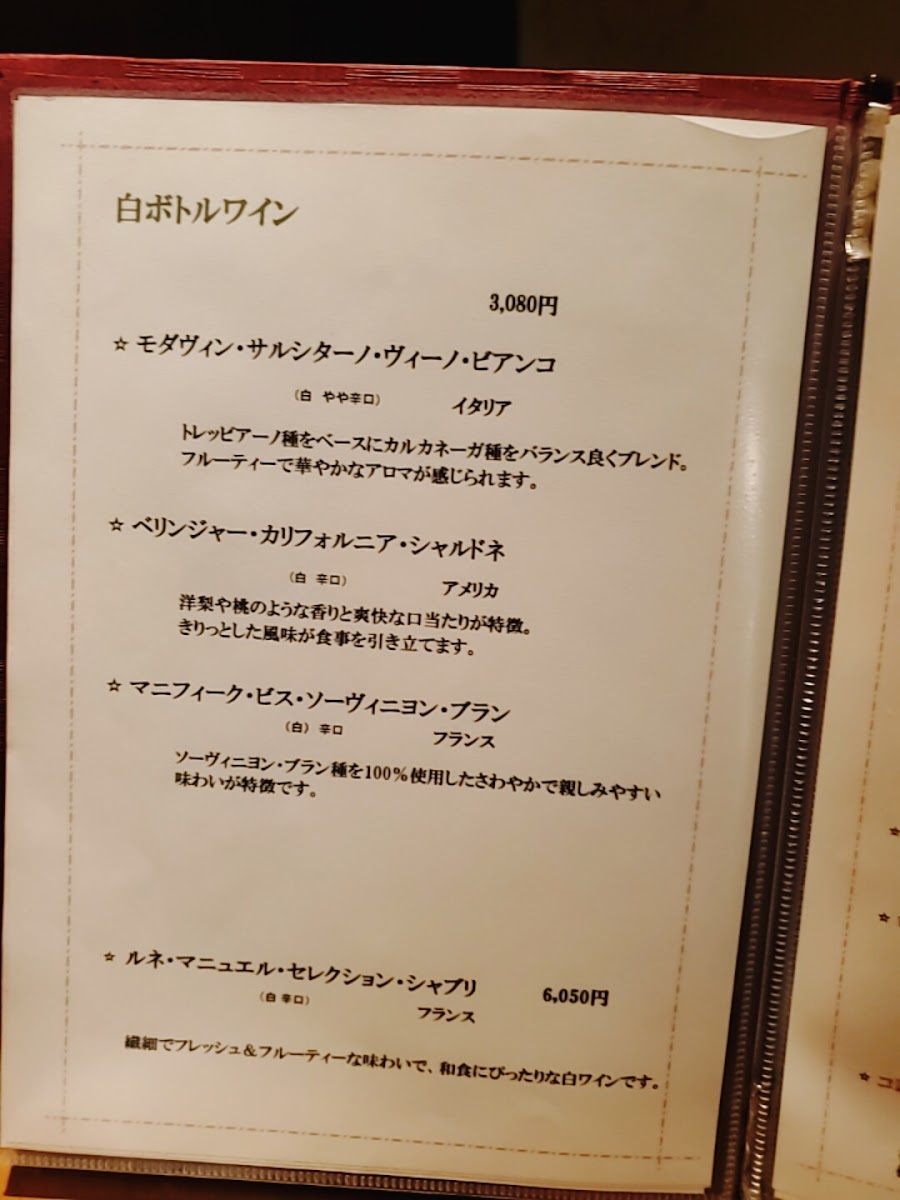 白ボトルワイン
3,080円
☆ モダヴィン・サルシターノ・ヴィーノ・ビアンコ
（白 やや辛口） イタリア
トレッビアーノ種をベースにカルカネーガ種をバランス良くブレンド。
フルーティーで華やかなアロマが感じられます。
☆ ベリンジャー・カリフォルニア・シャルドネ
（白 辛口） アメリカ
洋梨や桃のような香りと爽快な口当たりが特徴。
きりっとした風味が食事を引き立てます。
☆ マニフィーク・ビス・ソーヴィニヨン・ブラン
（白） 辛口 フランス
ソーヴィニヨン・ブラン種を100％使用したさわやかで親しみやすい
味わいが特徴です。
☆ ルネ・マニュエル・セレクション・シャブリ 6,050円
（白 辛口） フランス
繊細でフレッシュ＆フルーティーな味わいで、和食にぴったりな白ワインです。
☆
☆
☆ コ